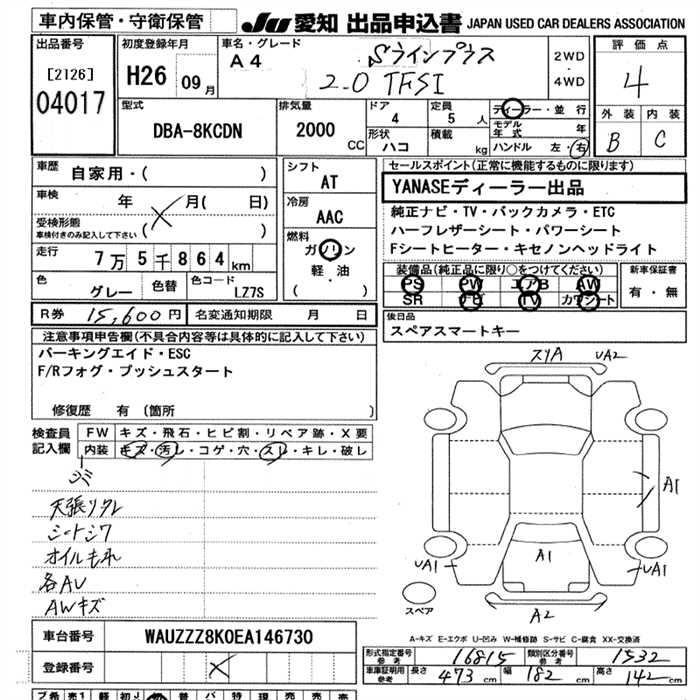 車内保管・守衛保管
JU 愛知 出品申込書 JAPAN USED CAR DEALERS ASSOCIATION
出品番号 [2126] 04017
初度登録年月 H26 09月
車名・グレード A4 Sラインプラス 2.0 TFSI
2WD・4WD
評価点 4
外装 B 内装 C
型式 DBA-8KCDN
排気量 2000 CC
ドア 4 定員 5 人
形状 ハコ 積載 kg
ディーラー・並行
モデル年式 年
ハンドル 左・右
車歴 自家用・( )
車検 年 月( 日)
受検形態 車検付きのみ記入して下さい ( )
走行 7万5千864km
色 グレー 色替 色コード LZ7S
シフト AT
冷房 AAC
燃料 ガソリン 軽・油 ( )
セールスポイント(正常に機能するものに限ります)
YANASEディーラー出品
純正ナビ・TV・バックカメラ・ETC
ハーフレザーシート・パワーシート
Fシートヒーター・キセノンヘッドライト
装備品(純正品に限り○をつけてください) 新車保証書
PS PW エアB AW 有・無
SR ナビ TV カワシート
R券 15,600円 名変通知期限 月 日
後日品
スペアスマートキー
注意事項申告欄(不具合内容等は具体的に記入して下さい)
パーキングエイド・ESC
F/Rフォグ・プッシュスタート
修復歴 有(箇所 )
検査員記入欄
FW キズ・飛石・ヒビ割・リペア跡・X要
内装 キズ・汚レ・コゲ・穴・スレ・キレ・破レ
シミ
天張リタレ
シートシワ
オイルもれ
各AU
AWキズ
スリA UA2
A1
A1
UA1 UA1
スペア
A2
A-キズ E-エクボ U-凹み W-補修跡 S-サビ C-腐食 XX-交換済
車台番号 WAUZZZ8K0EA146730
登録番号
形式指定番号 参考 16815 類別区分番号 参考 1532
車庫証明用 参考 長さ 473 cm 幅 182 cm 高さ 142 cm